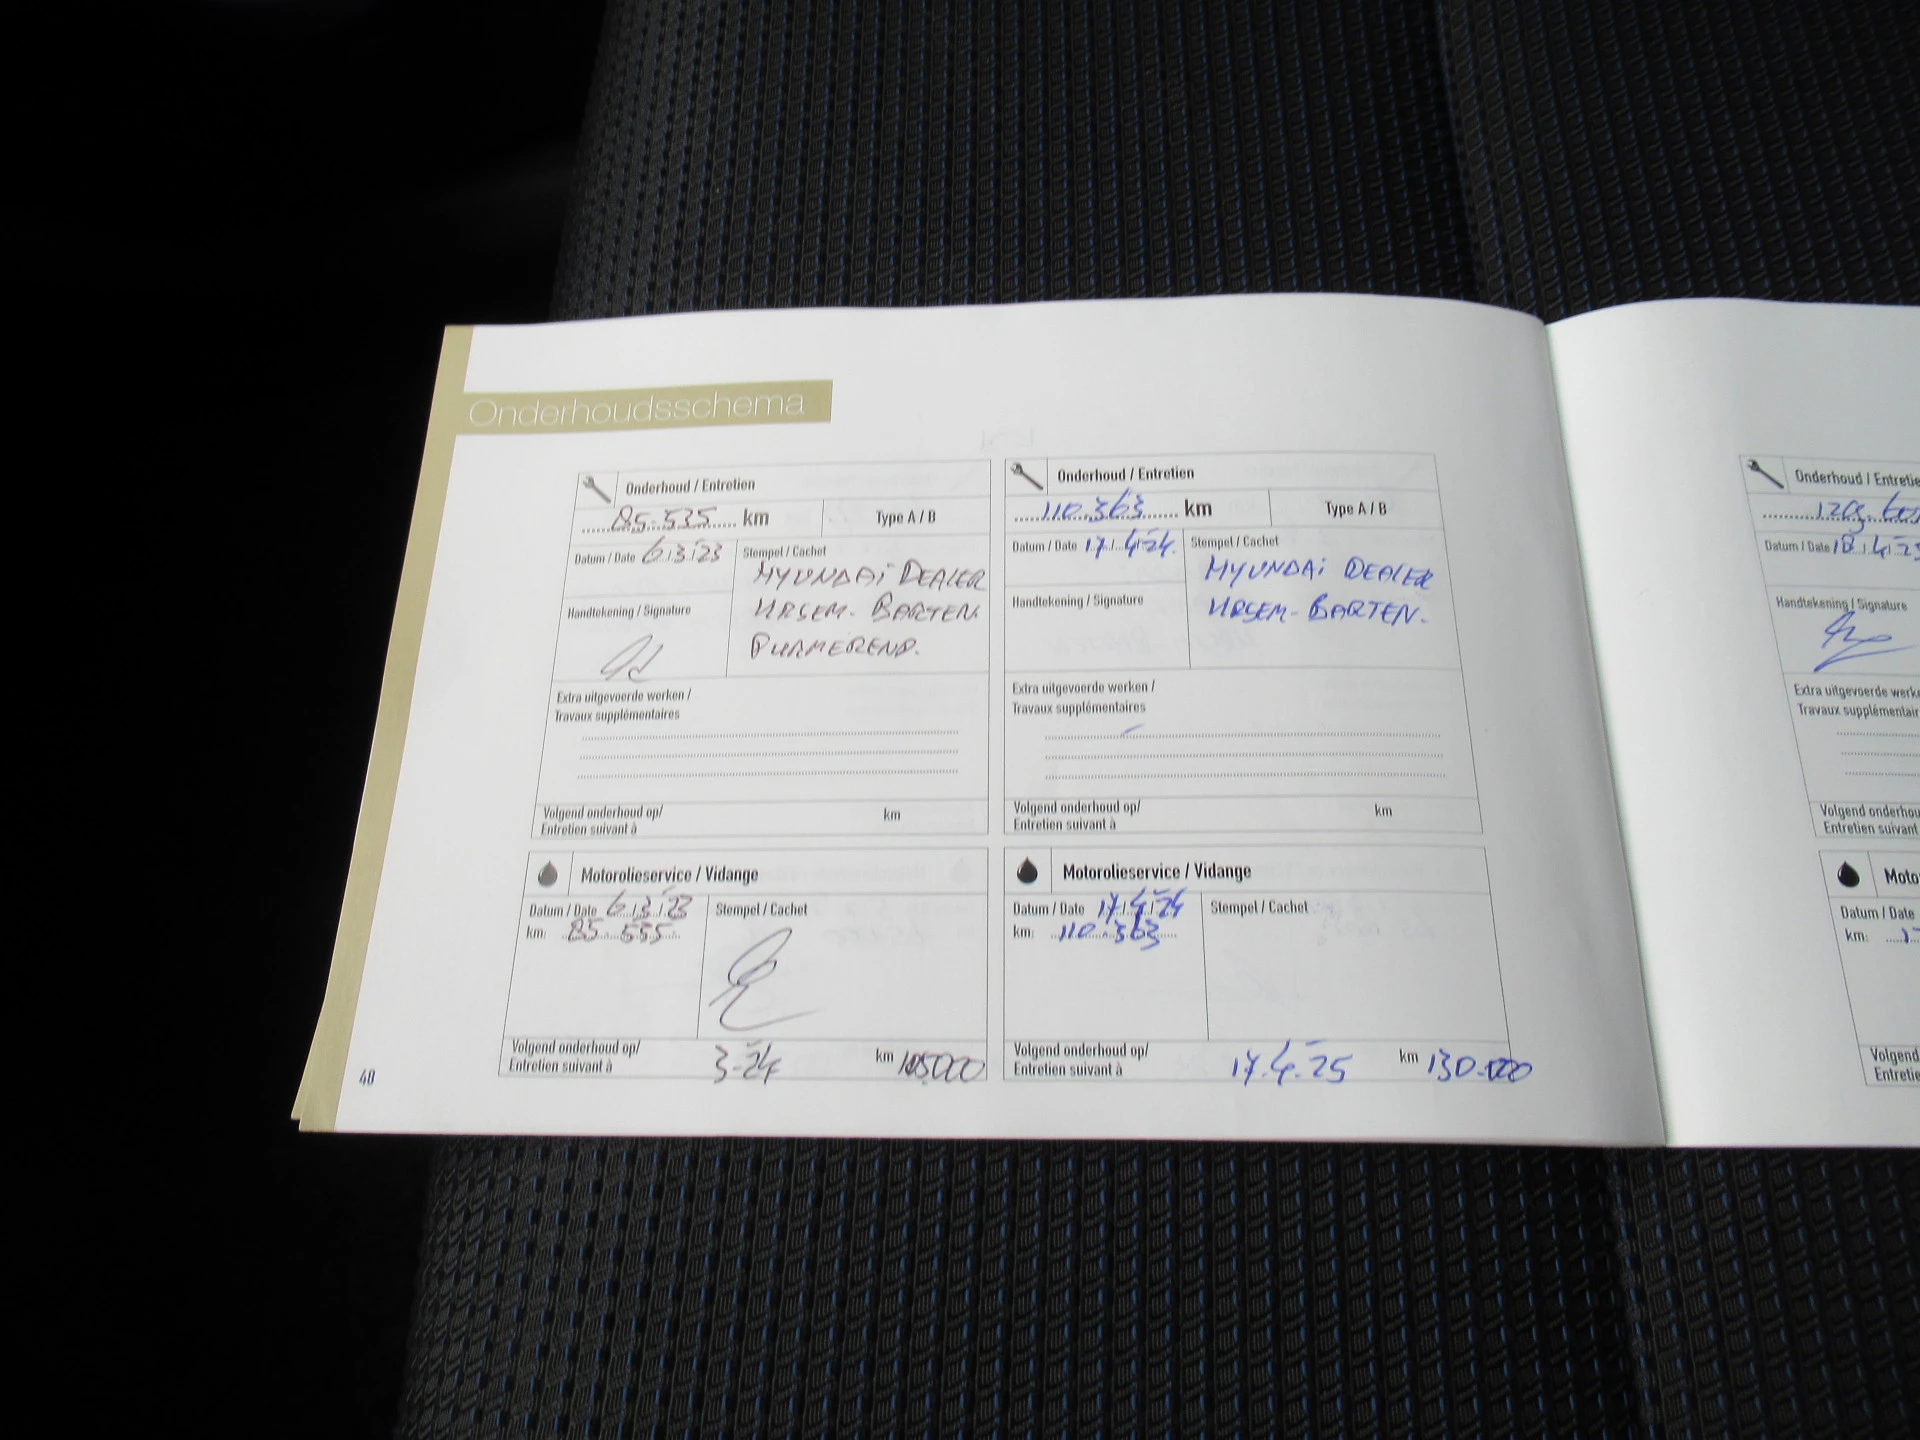 Onderhoudsschema
Onderhoud / Entretien
85.535 km Type A / B
Datum / Date 6/3/'23 Stempel / Cachet
HYUNDAi DEALER
URSEM-BARTEN.
PURMEREND.
Handtekening / Signature
Extra uitgevoerde werken /
Travaux supplémentaires
Volgend onderhoud op/ km
Entretien suivant à
Motorolieservice / Vidange
Datum / Date 6/3/'23 Stempel / Cachet
km: 85.535
Volgend onderhoud op/
Entretien suivant à 3-'24 km 105000
Onderhoud / Entretien
110.363 km Type A / B
Datum / Date 17/4/'24. Stempel / Cachet
HYUNDAi DEALER
URSEM-BARTEN.
Handtekening / Signature
Extra uitgevoerde werken /
Travaux supplémentaires
Volgend onderhoud op/ km
Entretien suivant à
Motorolieservice / Vidange
Datum / Date 17/4/'24 Stempel / Cachet
km: 110.363
Volgend onderhoud op/
Entretien suivant à 17.4.'25 km 130.000
48
Onderhoud / Entretie
Datum / Date 18/4/25
Handtekening / Signature
Extra uitgevoerde werke
Travaux supplémentair
Volgend onderhou
Entretien suivant
Moto
Datum / Date
km:
Volgend
Entretie